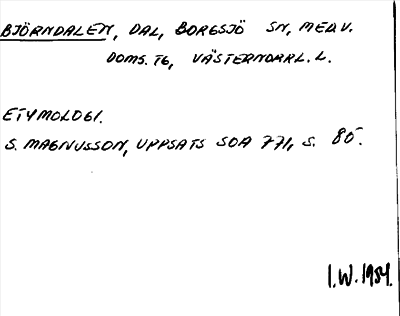 BJÖRNDALEN, DAL, BORGSJÖ SN, MED.V.
DOMS. TG, VÄSTERNORRL. L.
ETYMOLOGI.
S. MAGNUSSON, UPPSATS SOA 771, S. 85.
I.W. 1954.